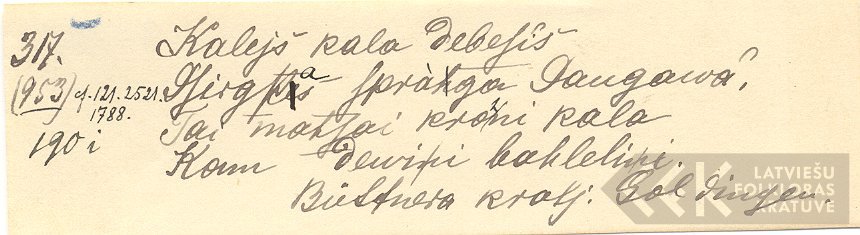 317.
(953) cf. 121. 2521.
1788.
190 i
Kalejš kala debesīs
Dsirgstes sprāhga Daugawā,
Tai mahsai kroni kala
Kam dewiņi bahleliņi.
Büttnera krāj. Goldingen.
LATVIEŠU
FOLKLORAS
KRĀTUVE